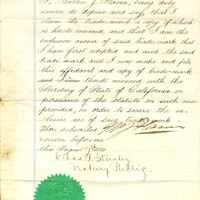 I, Martin J. Flavin, being duly
sworn do depose and say that I
claim the trade-mark a copy of which
is hereto annexed, and that I am the
exclusive owner of said trade mark that
I have first adopted and used the said
trade mark and I now make and file
this affidavit and copy of trade-mark
and I am thereto annexed with the
Secretary of State of California in
pursuance of the statute in such case
provided, in order to secure the ex-
clusive use of said trade mark
Thus subscribed
sworn before me
this August
Chas. D. Stanley
Notary Public